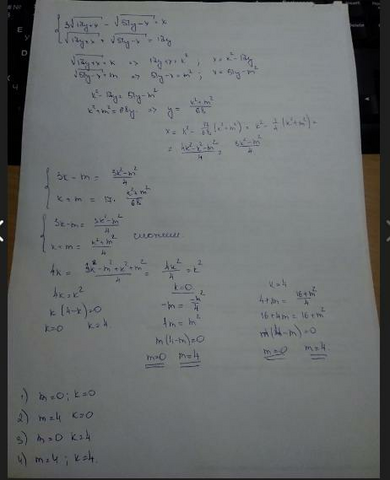 3√17y+x - √51y-x = x
√17y+x + √51y-x = 17y
√17y+x = k => 17y+x = k² ; x = k²-17y
√51y-x = m => 51y-x = m² ; x = 51y-m²
k²-17y = 51y-m²
k²+m² = 68y => y = k²+m²/68
x = k² - 17/68 (k²+m²) = k² - 1/4 (k²+m²) =
= 4k²-k²-m²/4 = 3k²-m²/4
3k-m = 3k²-m²/4
k+m = 17. k²+m²/68
3k-m = 3k²-m²/4
k+m = k²+m²/4 сложим
4k = 3k²-m²+k²+m²/4 = 4k²/4 = k²
4k = k²
k(4-k)=0
k=0 k=4
k=0
-m = -m²/4
4m = m²
m(4-m)=0
m=0 m=4
k=4
4+m = 16+m²/4
16+4m = 16+m²
m(4-m)=0
m=0 m=4
1) m=0; k=0
2) m=4 k=0
3) m=0 k=4
4) m=4; k=4